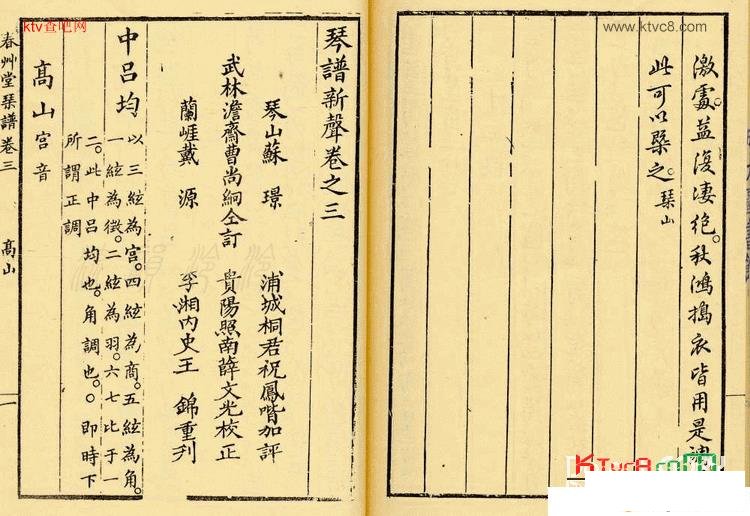 www.ktvc8.com
激處。益復凄絶。秋鴻搗衣皆用是
此可以槩之。琹山
ktv查吧网
琴譜新聲卷之三
琴山蘇 璟
武林澹齋曹尚絅仝訂
蘭崖戴 源
浦城桐君祝鳳喈加評
貴陽照南薛文光校正
李湘内史王 錦重刋
中呂均
以三絃為宮。四絃為商。五絃為角。
一絃為徵。二絃為羽。六七比于一
二。此中呂均也。角調也。即時下
所謂正調
高山宮音
春艸堂琹譜卷三
高山
一
KTvc8.com